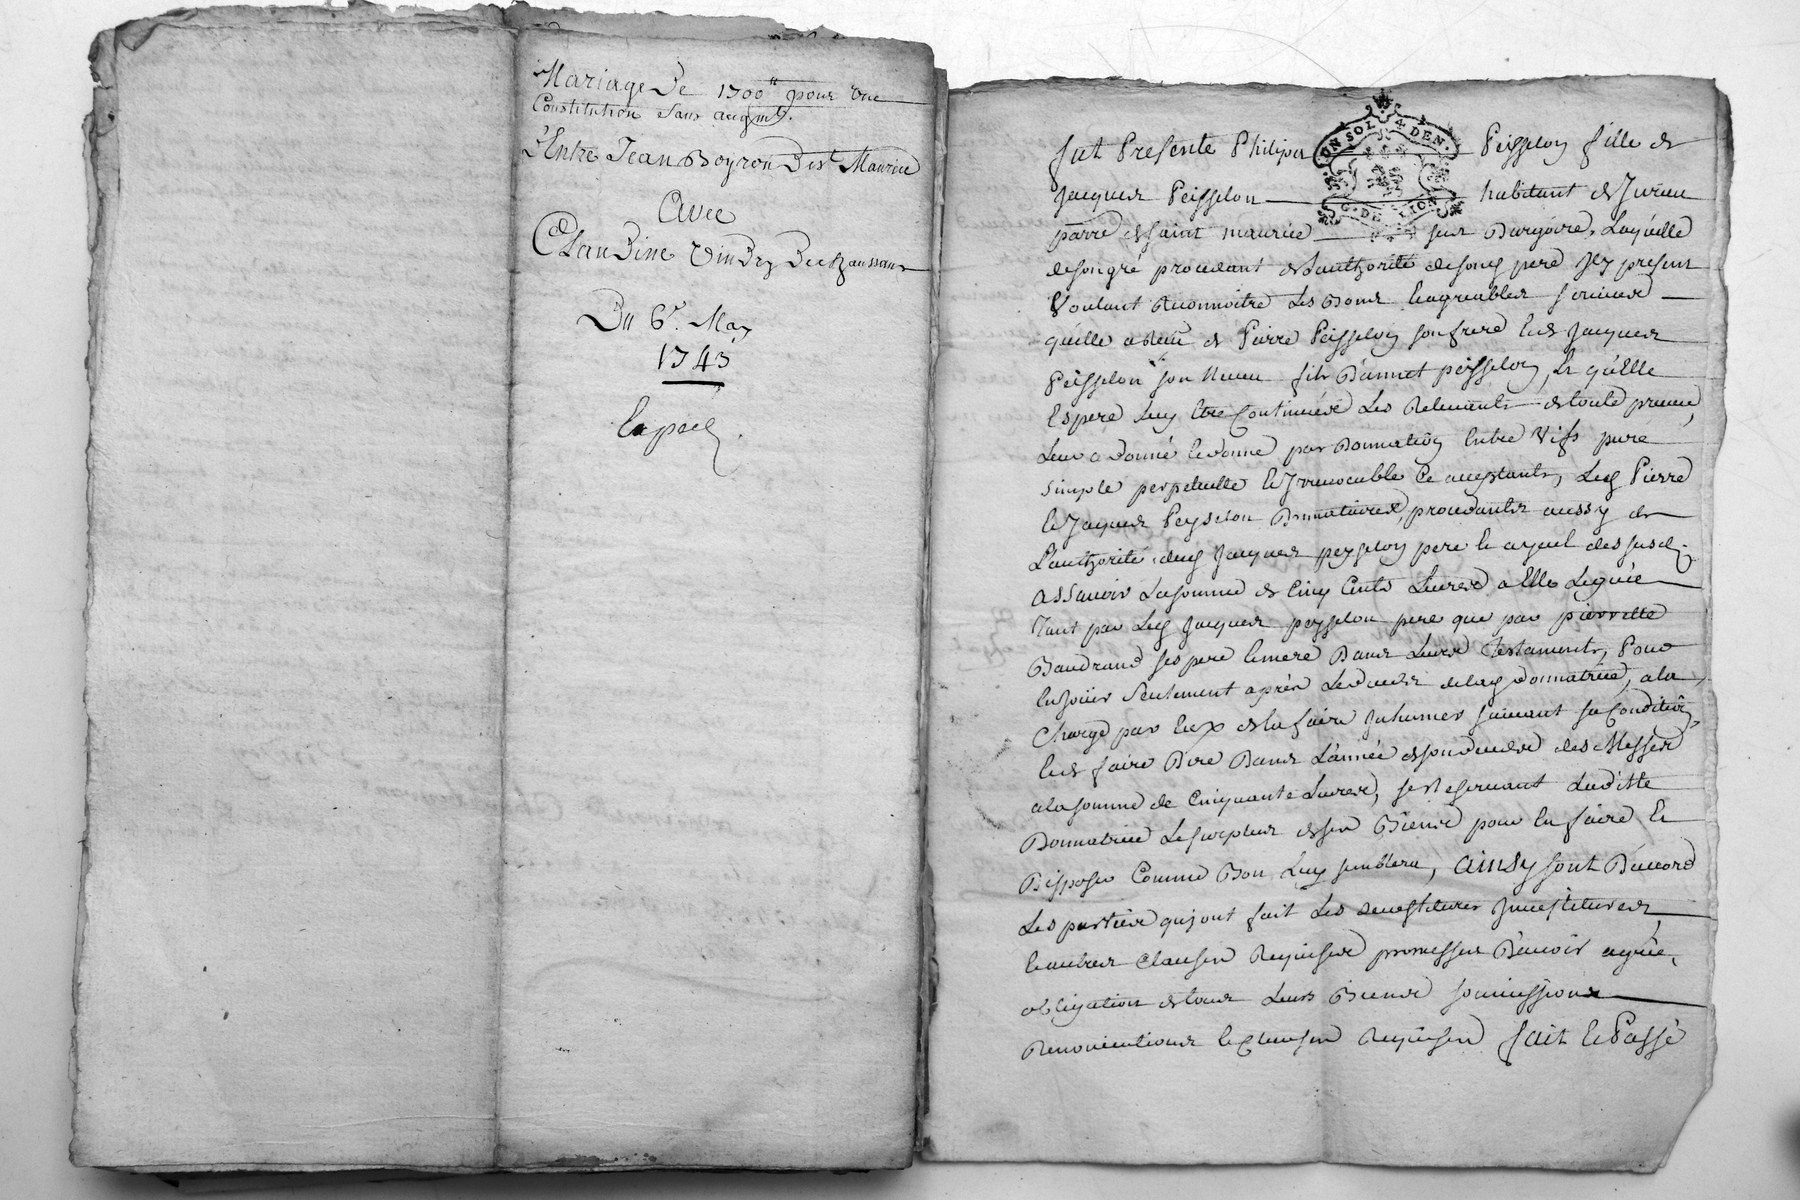 Mariage De 1700ᵗᵗ pour une
Constitution sans augmᵗ.
Entre Jean Boyron De sᵗ Maurice
Avec
Claudine Vindry De chaussan
Du 6ᵉ. May
1743
Exped
UN SOL 4 DEN.
G. DE LION
fut Presente Philipe Peisselon fille de
Jacques Peisselon habitant de Jurieu
parre de saint maurice sur Dargoire, Laquelle
de son gré procedant de l'authorité de sond pere Jcy present
Voulant Reconnoitre Les Bons Et agreables services
qu'elle a Reçu de Pierre Peisselon son frere Et de Jacques
Peisselon son Neveu fils D'annet peisselon, Et qu'Elle
Espere Luy Etre Continüés Les Relevants de toute preuve,
Leur a donné Et donne par Donnation Entre Vifs pure
simple perpetuelle Et Jrrevocable Ce acceptants, Led Pierre
Et Jacques Peysselon Donnataires, procedants aussy de
L'authorité dud Jacques peysselon pere Et ayeul des susd.
assavoir La somme de Cinq Cents Livres a Elle Leguée
Tant par Led Jacques peysselon pere que par pierrette
Baudrand ses pere Et mere Dans Leurs Testaments, Pour
En Jouir seulement après Le deces de lad donnatrice, a la
Charge par Eux de la faire Jnhumer suivant sa Condition,
Et de faire Dire Dans L'année de son deces des Messes
a la somme de Cinquante Livres, se Reservant Laditte
Donnatrice Le surplus de ses Biens pour En faire Et
Disposer Comme Bon Luy semblera, ainsy sont D'accord
Les parties qui ont fait Les devestitures Jnvestitures,
Et autres Clauses Requises promesses D'avoir agrée,
obligation de tous Leurs Biens soumissions
Renonciations Et Clauses Requises fait Et Passé